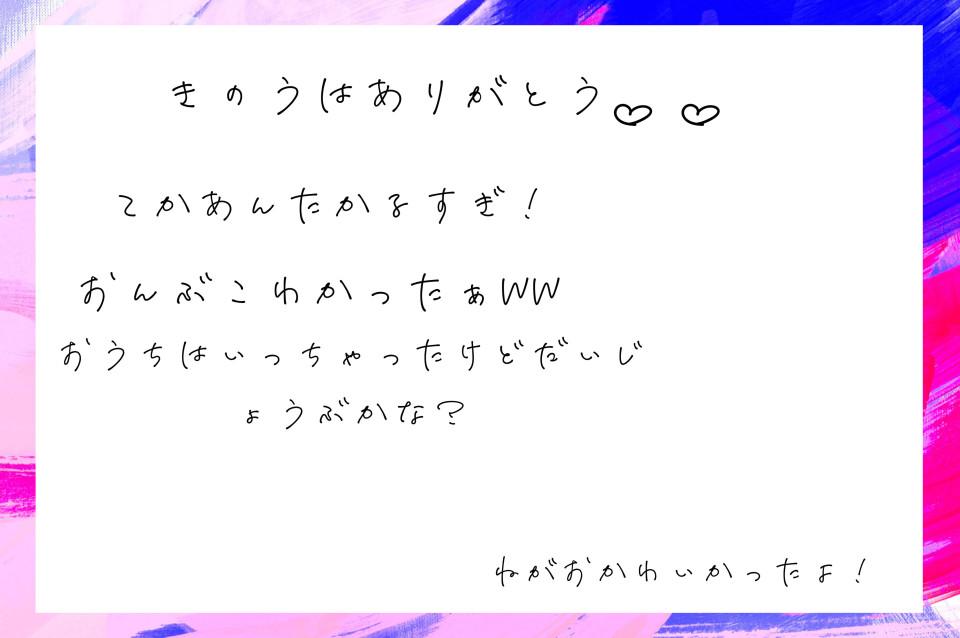 きのうはありがとう♡♡
てかあんたかるすぎ!
おんぶこわかったぁWW
おうちはいっちゃったけどだいじ
ょうぶかな?
ねがおかわいかったよ!